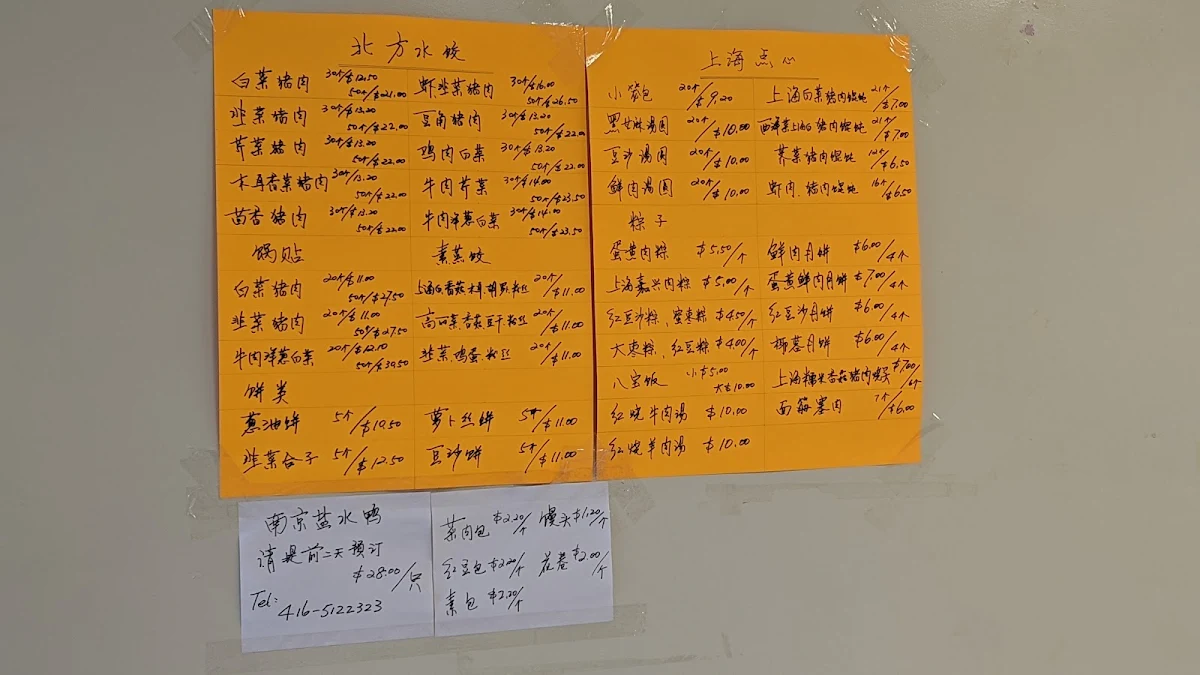 北方水饺
白菜猪肉 30个/$12.50 50个/$21.00 虾韭菜猪肉 30个/$16.00 50个/$26.50
韭菜猪肉 30个/$13.20 50个/$22.00 豆角猪肉 30个/$13.20 50个/$22.00
芹菜猪肉 30个/$13.20 50个/$22.00 鸡肉白菜 30个/$13.20 50个/$22.00
木耳香菜猪肉 30个/13.20 50个/$22.00 牛肉芹菜 30个/$14.00 50个/$23.50
茴香猪肉 30个/$13.20 50个/$22.00 牛肉洋葱白菜 30个/$14.00 50个/$23.50
锅贴 素蒸饺
白菜猪肉 20个/$11.00 50个/$27.50 上海白香菇木耳 粉丝 20个/$11.00
韭菜猪肉 20个/$11.00 50个/$27.50 香菇豆干粉丝 20个/$11.00
牛肉洋葱白菜 20个/$12.10 50个/$30.50 韭菜,鸡蛋,粉丝 20个/$11.00
饼类
葱油饼 5个/$10.50 萝卜丝饼 5个/$11.00
韭菜合子 5个/$12.50 豆沙饼 5个/$11.00
上海点心
小笼包 20个/$9.20 上海白菜猪肉馄饨 21个/$7.00
黑芝麻汤圆 20个/$10.00 西洋菜上海白猪肉馄饨 21个/$7.00
豆沙汤圆 20个/$10.00 荠菜猪肉馄饨 12个/$6.50
鲜肉汤圆 20个/$10.00 虾肉.猪肉馄饨 16个/$6.50
粽子
蛋黄肉粽 $5.50/个 鲜肉月饼 $6.00/4个
上海嘉兴肉粽 $5.00/个 蛋黄鲜肉月饼 $7.00/4个
红豆沙粽,蜜枣粽 $4.50/个 红豆沙月饼 $6.00/4个
大枣粽,红豆粽 $4.00/个 椰蓉月饼 $6.00/4个
八宝饭 小$5.00 大$10.00 上海糯米香菇猪肉烧卖 $7.00/6个
红烧牛肉汤 $10.00 面筋塞肉 7个/$6.00
红烧羊肉汤 $10.00
南京盐水鸭
请提前二天预订
$28.00/只
Tel: 416-5122323
菜肉包 $2.20/个 馒头 $1.20/个
红豆包 $2.20/个 花卷 $2.00/个
素包 $2.20/个